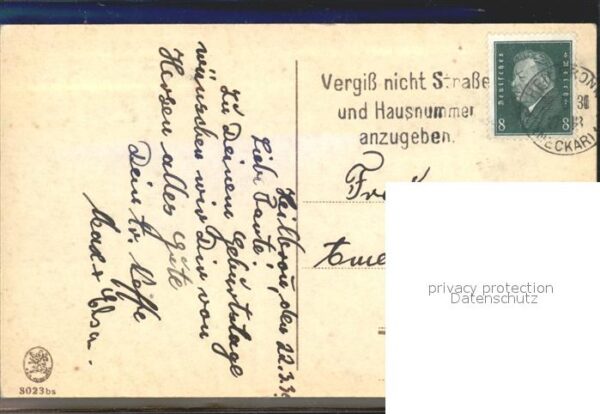 Heilbronn, den 22.3.30
Liebe Tante!
Zu Deinem Geburtstage
wünschen wir Dir von
Herzen alles Gute
Dein tr. Neffe
Max + Elsa.
Vergiß nicht Straße
und Hausnummer
anzugeben.
Deutsches Reich
8 8
HEILBRONN
NECKAR
privacy protection
Datenschutz
8023bs